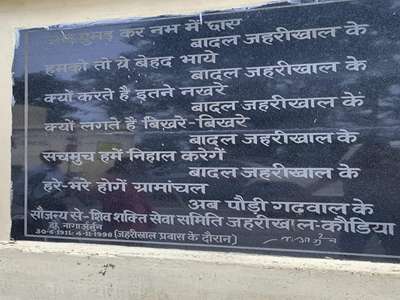 कर नभ में छाए
बादल जहरीखाल के
हमको तो ये बेहद भाये
बादल जहरीखाल के
क्यों करते है इतने नखरे
बादल जहरीखाल कें
क्यों लगते हैं बिखरे-बिखरे
बादल जहरीखाल के
सचमुच हमें निहाल करेगें
बादल जहरीखाल के
हरे-भरे होगें ग्रामांचल
अब पौड़ी गढवाल के
सौजन्य से-शिव शक्ति सेवा समिति जहरीखाल-कौडिया
डा. नागार्जुन
30-6-1911: 4-11-1998 (जहरीखाल प्रवास के दौरान)